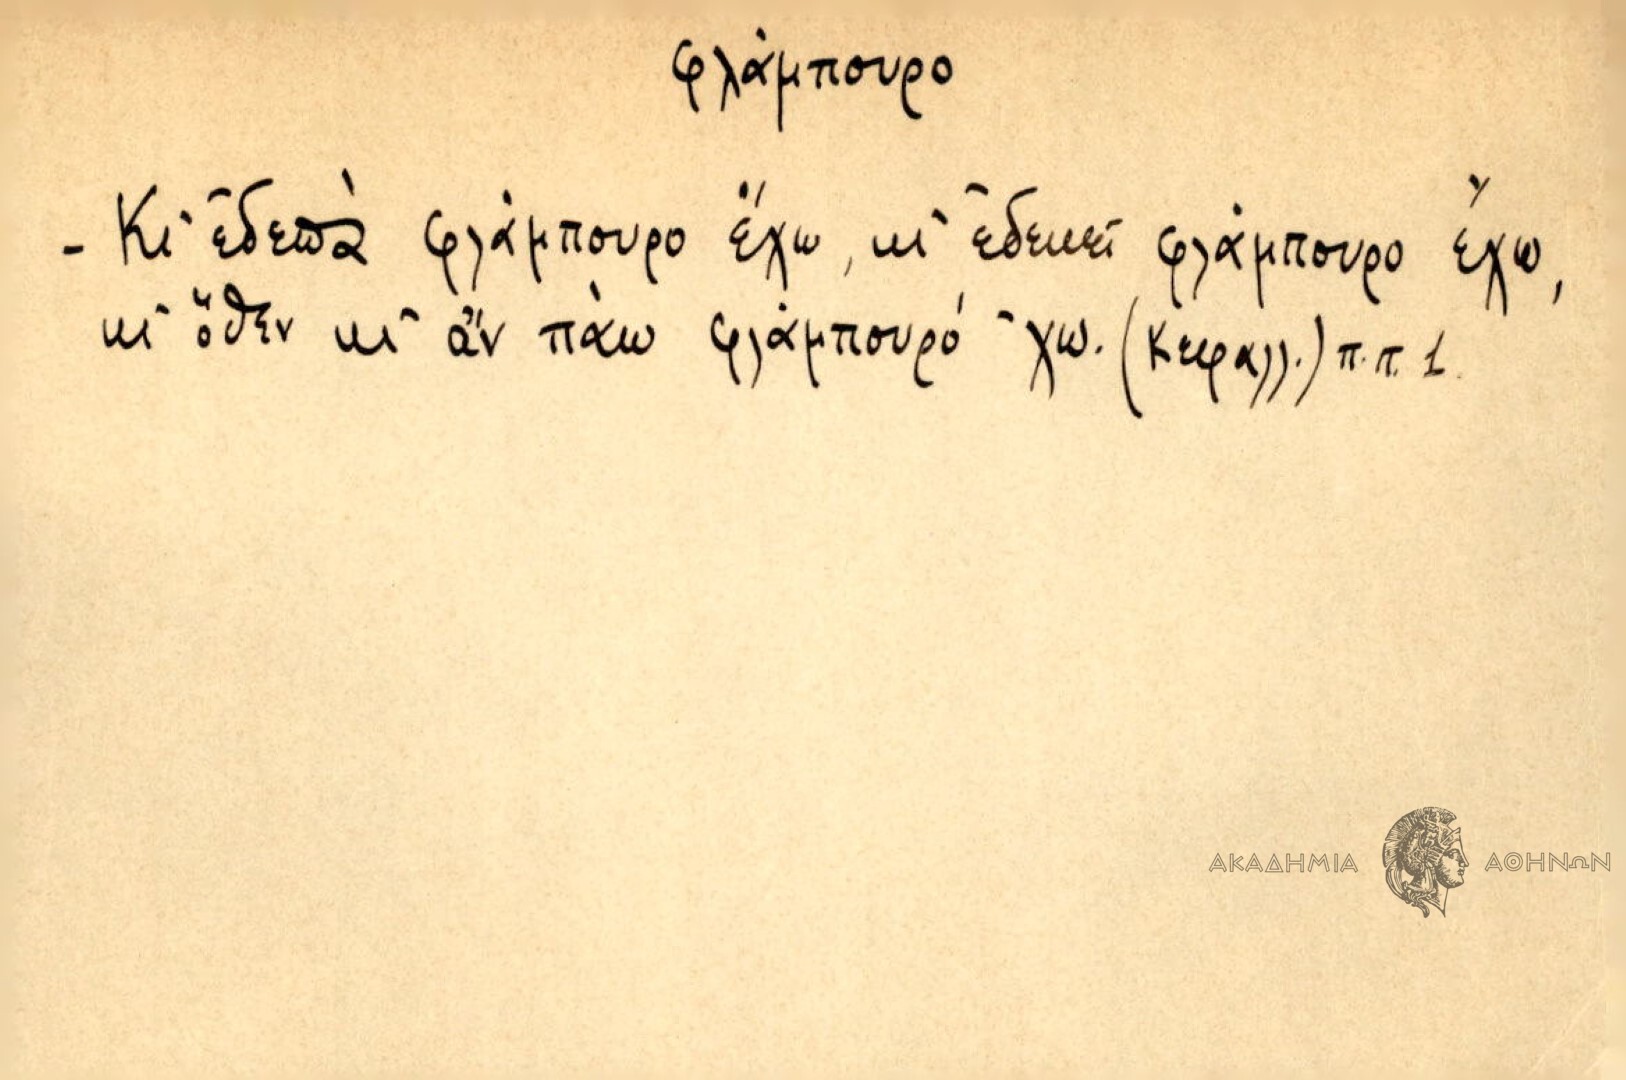 φλάμπουρο
- Κι' ἐδεπὰ φλάμπουρο ἔχω, κι' ἐδεκεῖ φλάμπουρο ἔχω,
κι' ὅθεν κι' ἂν πάω φλάμπουρό 'χω. (Κεφαλλ.) π.π. 1.
ΑΚΑΔΗΜΙΑ ΑΘΗΝΩΝ